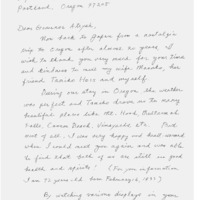 Portland, Oregon 97205
Dear Governor Atiyeh,
Now back to Japan from a nostalgic
trip to Oregon after almost 50 years, I
wish to thank you very much for your time
and kindness to see my wife Haruko, her
friend Tamiko Hess and myself.
During our stay in Oregon the weather
was perfect and Tamiko drove us to many
beautiful places like Mt. Hood, Multnomah
Falls, Canon Beach, Vineyards etc. Most
out of all, I was very happy and heart warmed
when I could meet you again and was able
to find that both of us are still in good
health and spirits! (For your information
I am 72 years old born February, 1931)
By watching various displays in your